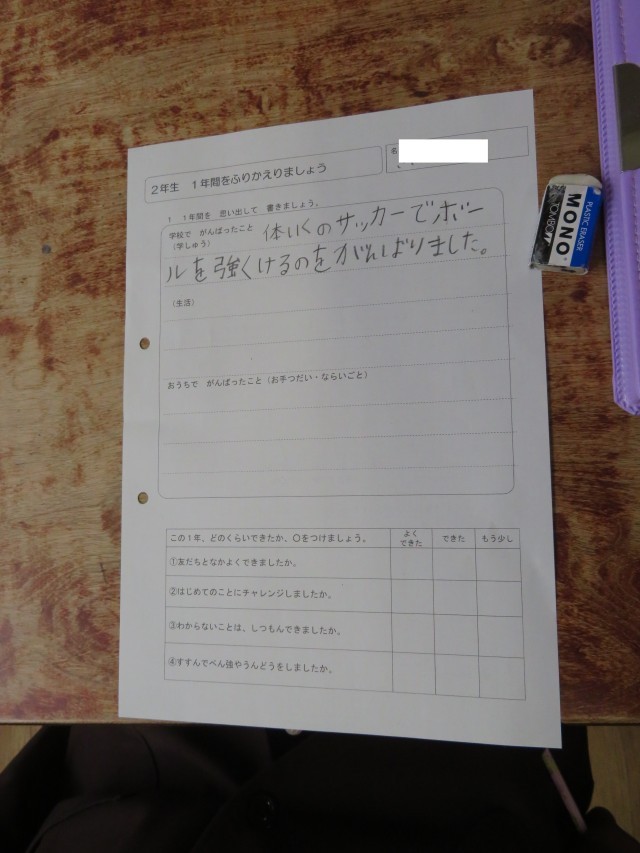 2年生　1年間をふりかえりましょう
名
1　1年間を　思い出して　書きましょう。
学校で　がんばったこと
（学しゅう）
体いくのサッカーでボー
ルを強くけるのをがんばりました。
（生活）
おうちで　がんばったこと（お手つだい・ならいごと）
この1年、どのくらいできたか、○をつけましょう。
よく
できた
できた
もう少し
①友だちとなかよくできましたか。
②はじめてのことにチャレンジしましたか。
③わからないことは、しつもんできましたか。
④すすんでべん強やうんどうをしましたか。
PLASTIC ERASER
MONO
TOMBOW